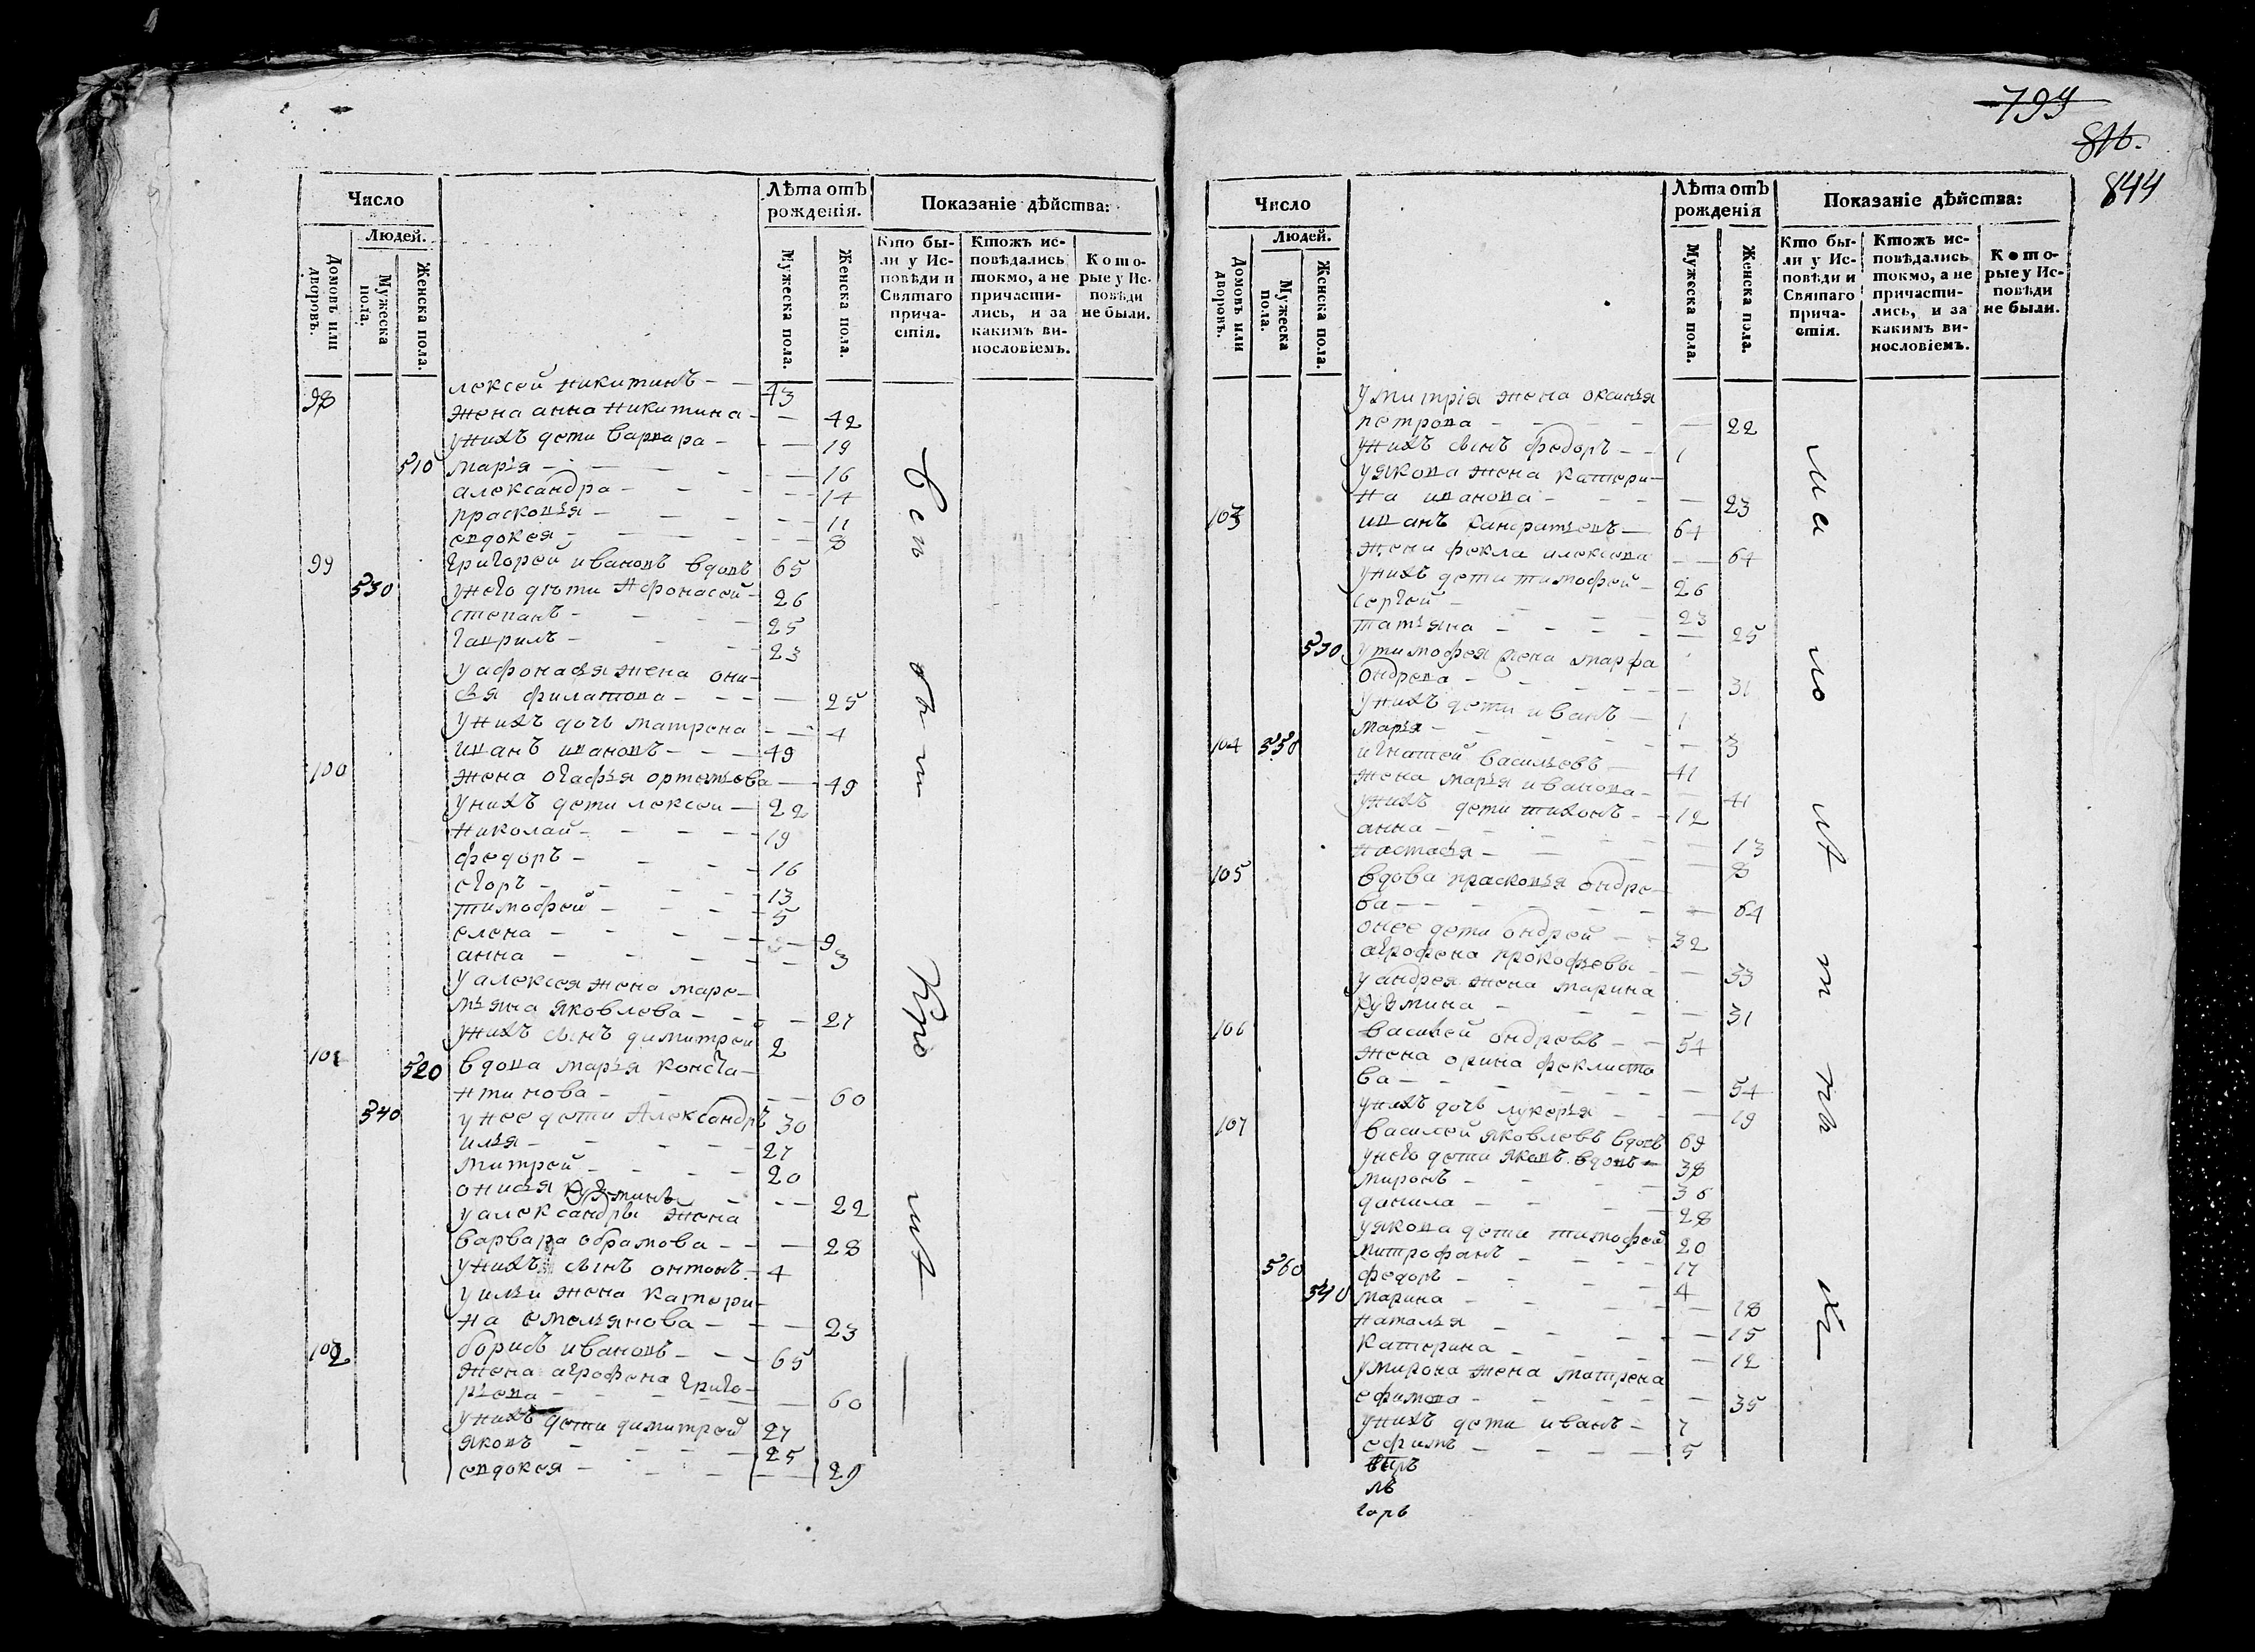 Число
Людей.
Домовъ или дворовъ.
Мужеска пола.
Женска пола.
Лѣта отъ рожденія.
Мужеска пола.
Женска пола.
Показаніе дѣйства:
Кто были у Исповѣди и Святаго причастія.
Ктожъ исповѣдались токмо, а не причастились, и за какимъ винословіемъ.
Которые у Исповѣди не были.
98 лексей никитинъ 43
жена анна никитина 42
унихъ дети варвара 19
510 марья 16
александра 14
прасковья 11
евдокея 8
99 григорей ивановъ вдовъ 65
530 унего дѣти Афонасей 26
степанъ 25
гаврилъ 23
у афонасья жена они-
сья филатова 25
унихъ дочь матрена 4
иванъ ивановъ 49
100 жена огафья ортемьева 49
унихъ дети лексеи 22
николай 19
федоръ 16
егоръ 13
тимофей 5
елена 9
анна 3
у алексея жена маре-
мьяна яковлева 27
унихъ сынъ димитреи 2
101 520 вдова марья конста-
нтинова 60
540 унее дети Александръ 30
илья 27
митрей 20
онисья кузмина 22
у александры жена
варвара обрамова 28
унихъ сынъ онтонъ 4
у ильи жена катери-
на емельянова 23
102 борисъ ивановъ 65
жена агрофена григо-
рьева 60
унихъ дети димитрей 27
яковъ 25
евдокея 29
799
816.
844
Число
Людей.
Домовъ или дворовъ.
Мужеска пола.
Женска пола.
Лѣта отъ рожденія
Мужеска пола.
Женска пола.
Показаніе дѣйства:
Кто были у Исповѣди и Святаго причастія.
Ктожъ исповѣдались токмо, а не причастились, и за какимъ винословіемъ.
Которые у Исповѣди не были.
умитрія жена оксинья
петрова 22
унихъ сынъ федоръ 1
уякова жена катери-
на иванова 23
103 иванъ кандратьевъ 64
жена фекла илексева 64
унихъ дети тимофей 26
сергей 23
татьяна 25
530 утимофея жена марфа
ондрева 31
унихъ дети иванъ 1
марья 3
104 550 игнатей васильевъ 41
жена марья иванова 41
унихъ дети тихонъ 12
анна 13
настасья 8
105 вдова прасковья ондре-
ва 64
онее дети ондрей 32
агрофена прокофьева 33
у андрея жена марина
кузмина 31
106 василей ондревъ 54
жена орина феклисто
ва 54
унихъ дочь лукерья 19
107 василей яковлевъ вдовъ 69
унего дети яковъ вдовъ 38
миронъ 36
данила 28
уякова дети тимофей 20
560 митрофанъ 17
федоръ 4
540 марина 18
наталья 15
катерина 12
умирона жена матрена
ефимова 35
унихъ дети иванъ 7
ефимъ 5
гарь